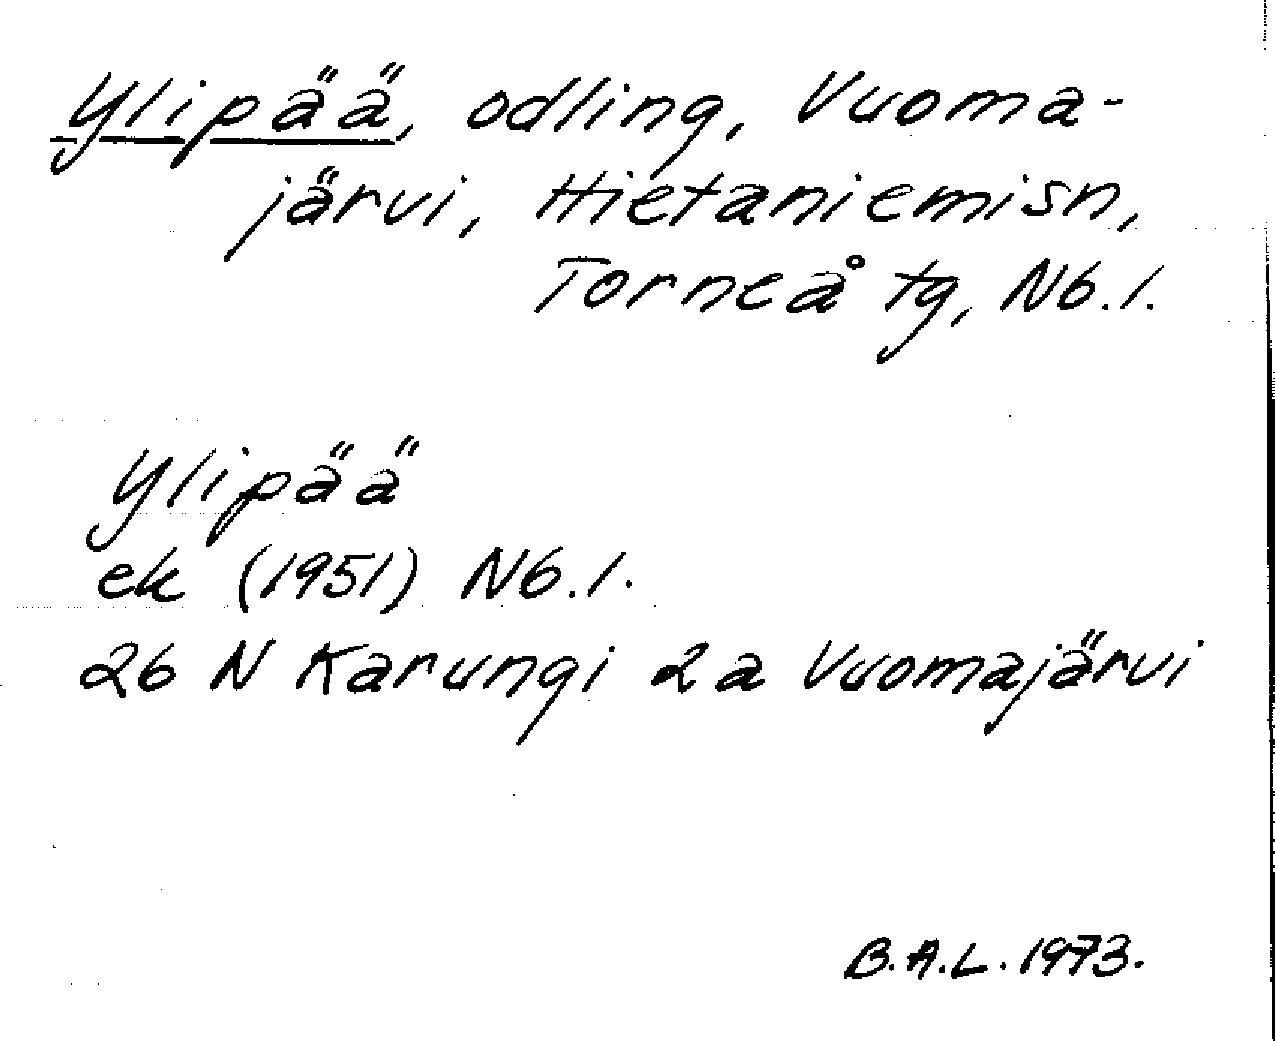 Ylipää, odling, Vuoma-
järvi, Hietaniemisn,
Torneå tg, Nb.l.
Ylipää
ek (1951) Nb.l.
26 N Karungi 2a Vuomajärvi
B.A.L. 1973.